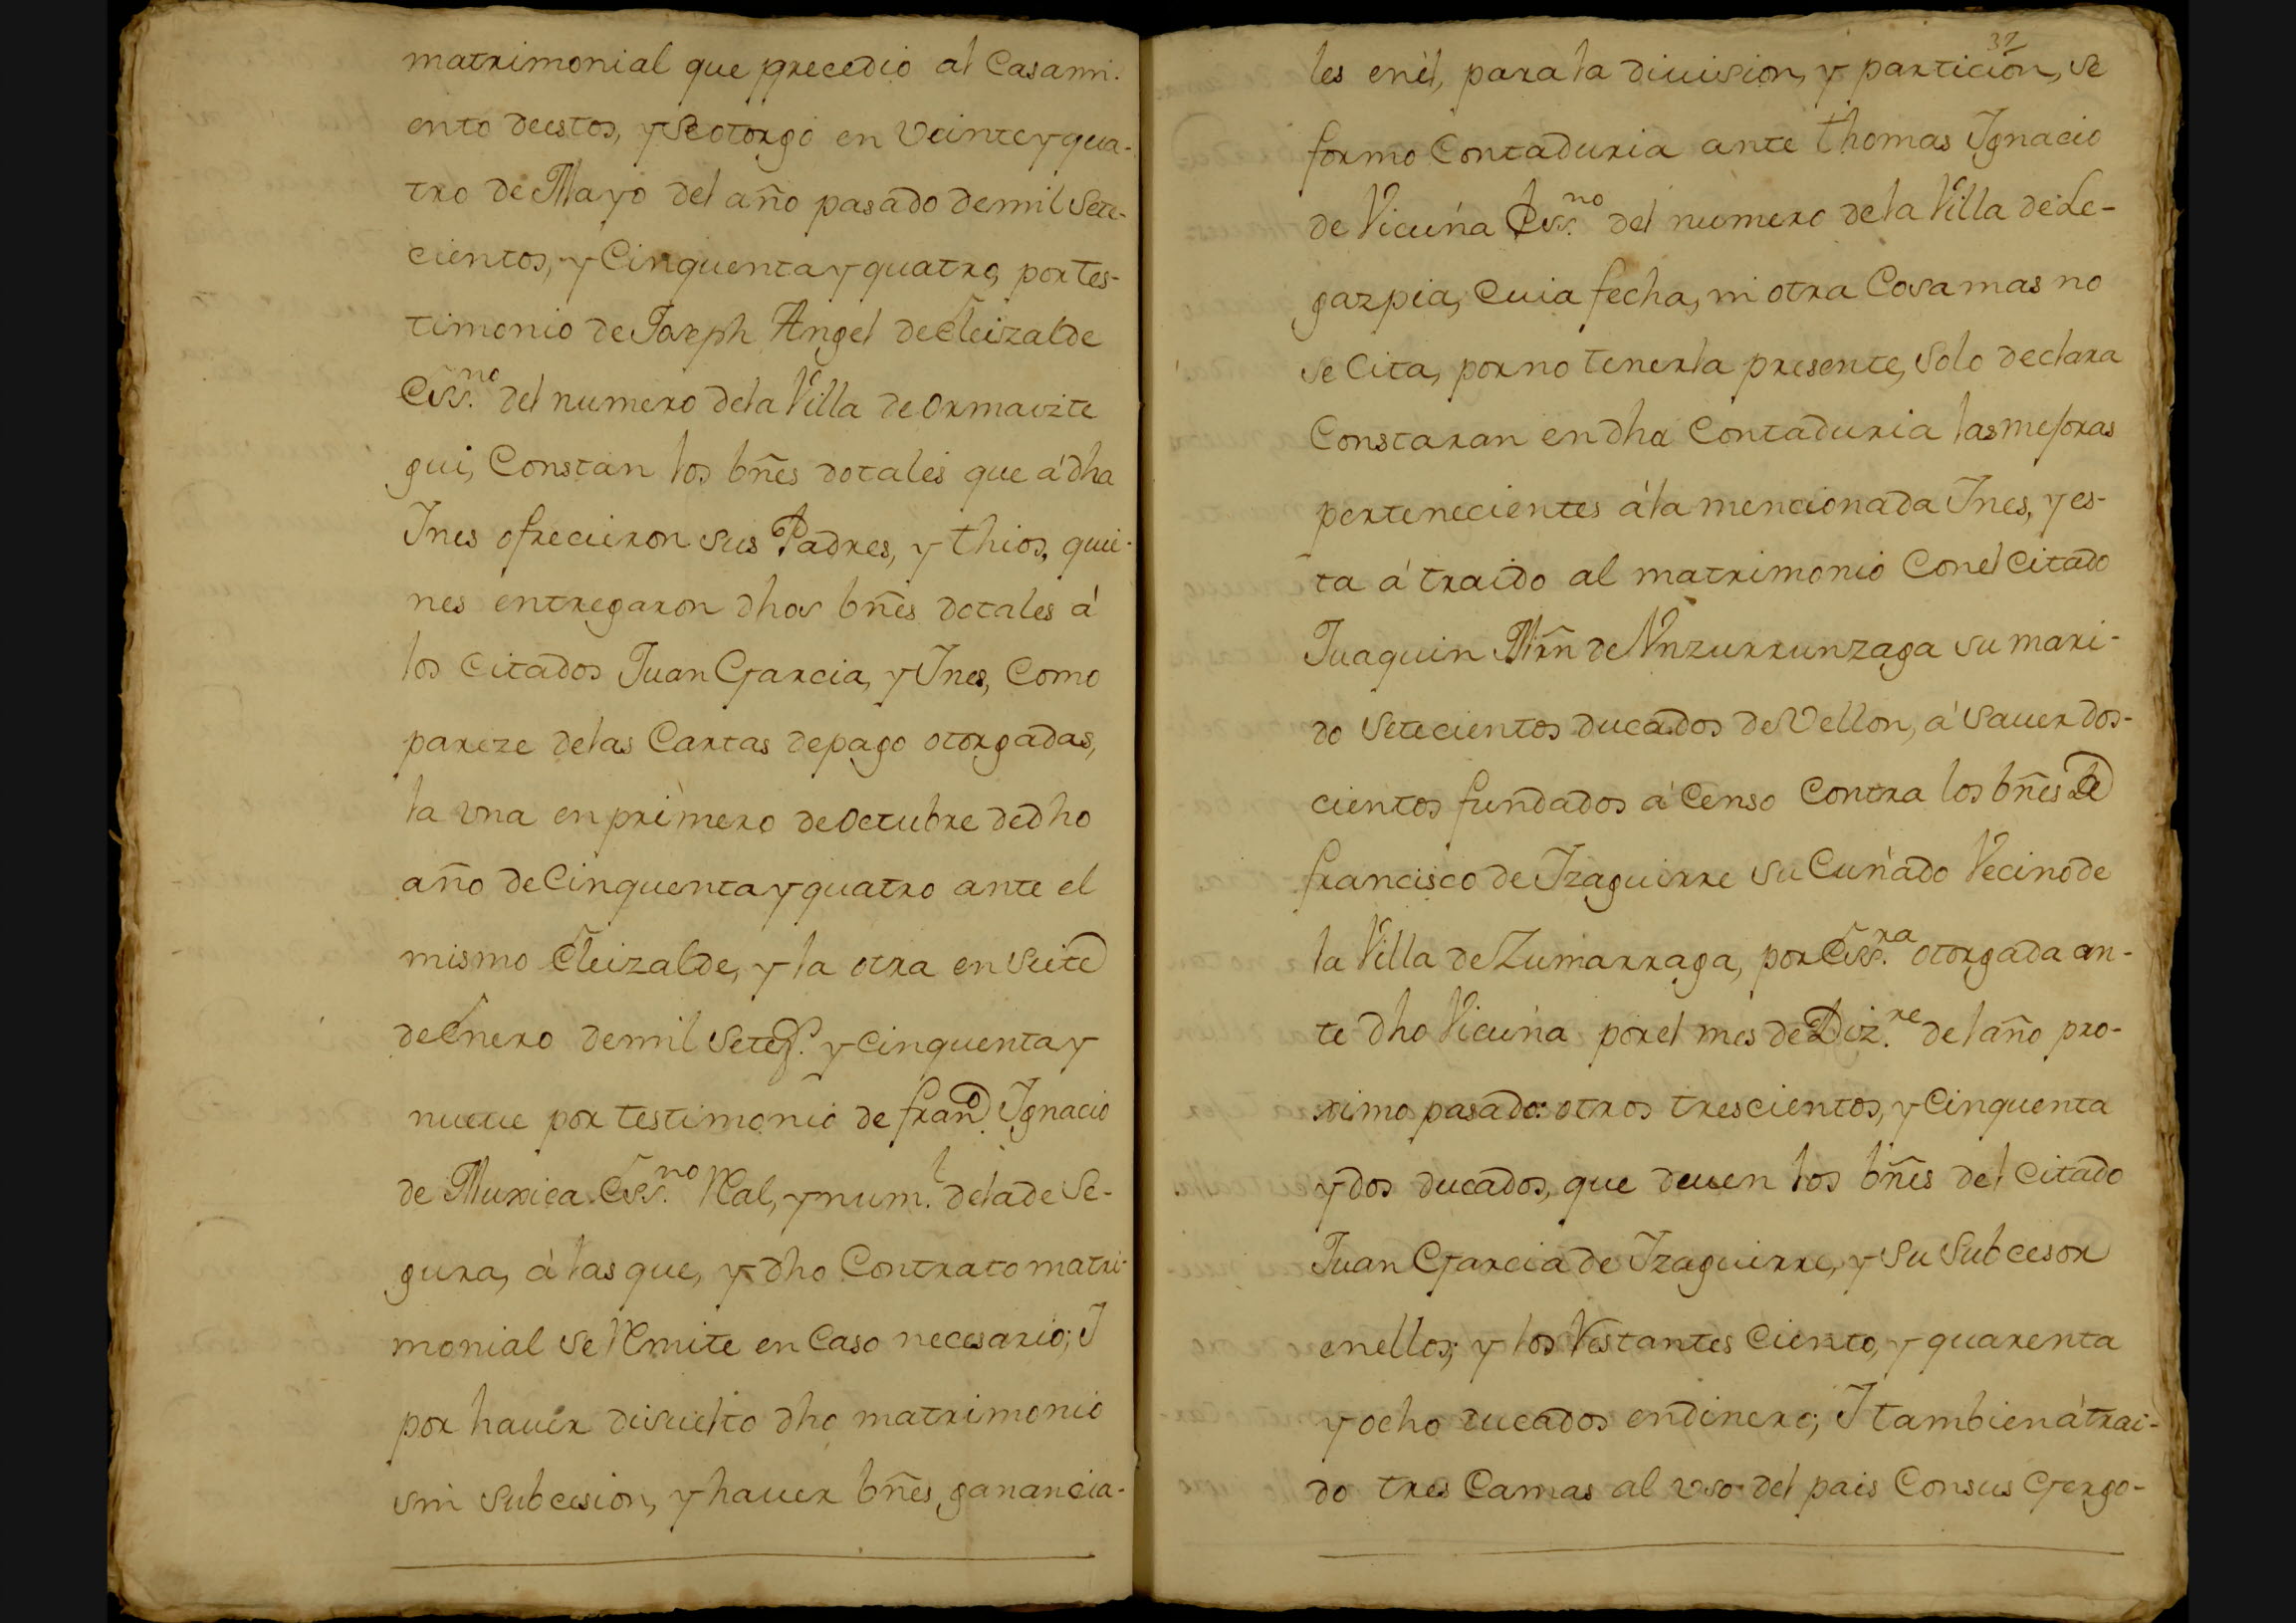 matrimonial que precedio al Casami-
ento deestos, y Se otorgó en Veinte y qua-
tro de Mayo del año pasado de mil Sete-
cientos, y Cinquenta y quatro, por tes-
timonio de Joseph Angel de Eleizalde
Ess.no del numero de la Villa de Ormaizte
gui, Constan los bñes dotales que á dha
Ines ofrecieron sus Padres, y thios, quie-
nes entregaron dhos bñes dotales á
los Citados Juan Garcia, y Ines, Como
pareze de las Cartas de pago otorgadas,
la vna en primero de Octubre de dho
año de Cinquenta y quatro ante el
mismo Eleizalde, y la otra en Seite
de Enero de mil Setez.s y Cinquenta y
nueue por testimonio de fran.co Ignacio
de Muxica Ess.no Real, y num.l de la de Se-
gura, á las que, y dho Contrato matri-
monial se Remite en Caso necesario; I
por hauer disuelto dho matrimonio
sin Subcesion, y hauer bñes, ganancia-
32
les en èl, para la diuision, y particion, se
formo Contaduria ante thomas Ignacio
de Vicuña Ess.no del numero de la Villa de Le-
gazpia, Cuia fecha, ni otra Cosa mas no
se Cita, por no tenerla presente, Solo declara
Constaran en dha Contaduria las mejoras
pertenecientes á la mencionada Ines, y es-
ta á traido al matrimonio Con el Citado
Juaquin Mrñ de Vnzurrunzaga su mari-
do Setecientos ducados de Vellon, á Sauer dos-
cientos fundados á Censo Contra los bñes de
francisco de Izaguirre su Cuñado Vecino de
la Villa de Zumarraga, por Ess.ra otorgada an-
te dho Vicuña por el mes de Diz.re del año pro-
ximo pasado: otros trescientos, y Cinquenta
y dos ducados, que deuen los bñes del Citado
Juan Garcia de Izaguirre, y Su Subcesor
en ellos; y los Restantes Ciento, y quarenta
y ocho ducados en dinero; I tambien á trai-
do tres Camas al vso del pais Con sus Gergo-